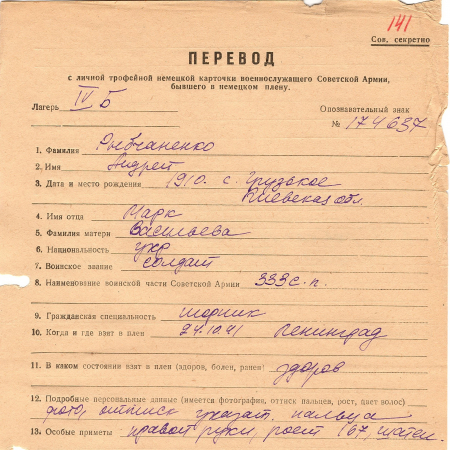 141
Сов. секретно
ПЕРЕВОД
с личной трофейной немецкой карточки военнослужащего Советской Армии,
бывшего в немецком плену.
Лагерь IV Б Опознавательный знак
№ 174637
1. Фамилия Рыбчаненко
2. Имя Андрей
3. Дата и место рождения 1910. с. Грузское
Киевская обл
4. Имя отца Марк
5. Фамилия матери Васильева
6. Национальность укр
7. Воинское звание солдат
8. Наименование воинской части Советской Армии 333 с. п.
9. Гражданская специальность шорник
10. Когда и где взят в плен 24.10.41 Ленинград
11. В каком состоянии взят в плен (здоров, болен, ранен) здоров
12. Подробные персональные данные (имеется фотография, оттиск пальцев, рост, цвет волос)
фото, оттиск указат. пальца
13. Особые приметы правой руки, рост 167, шатен.